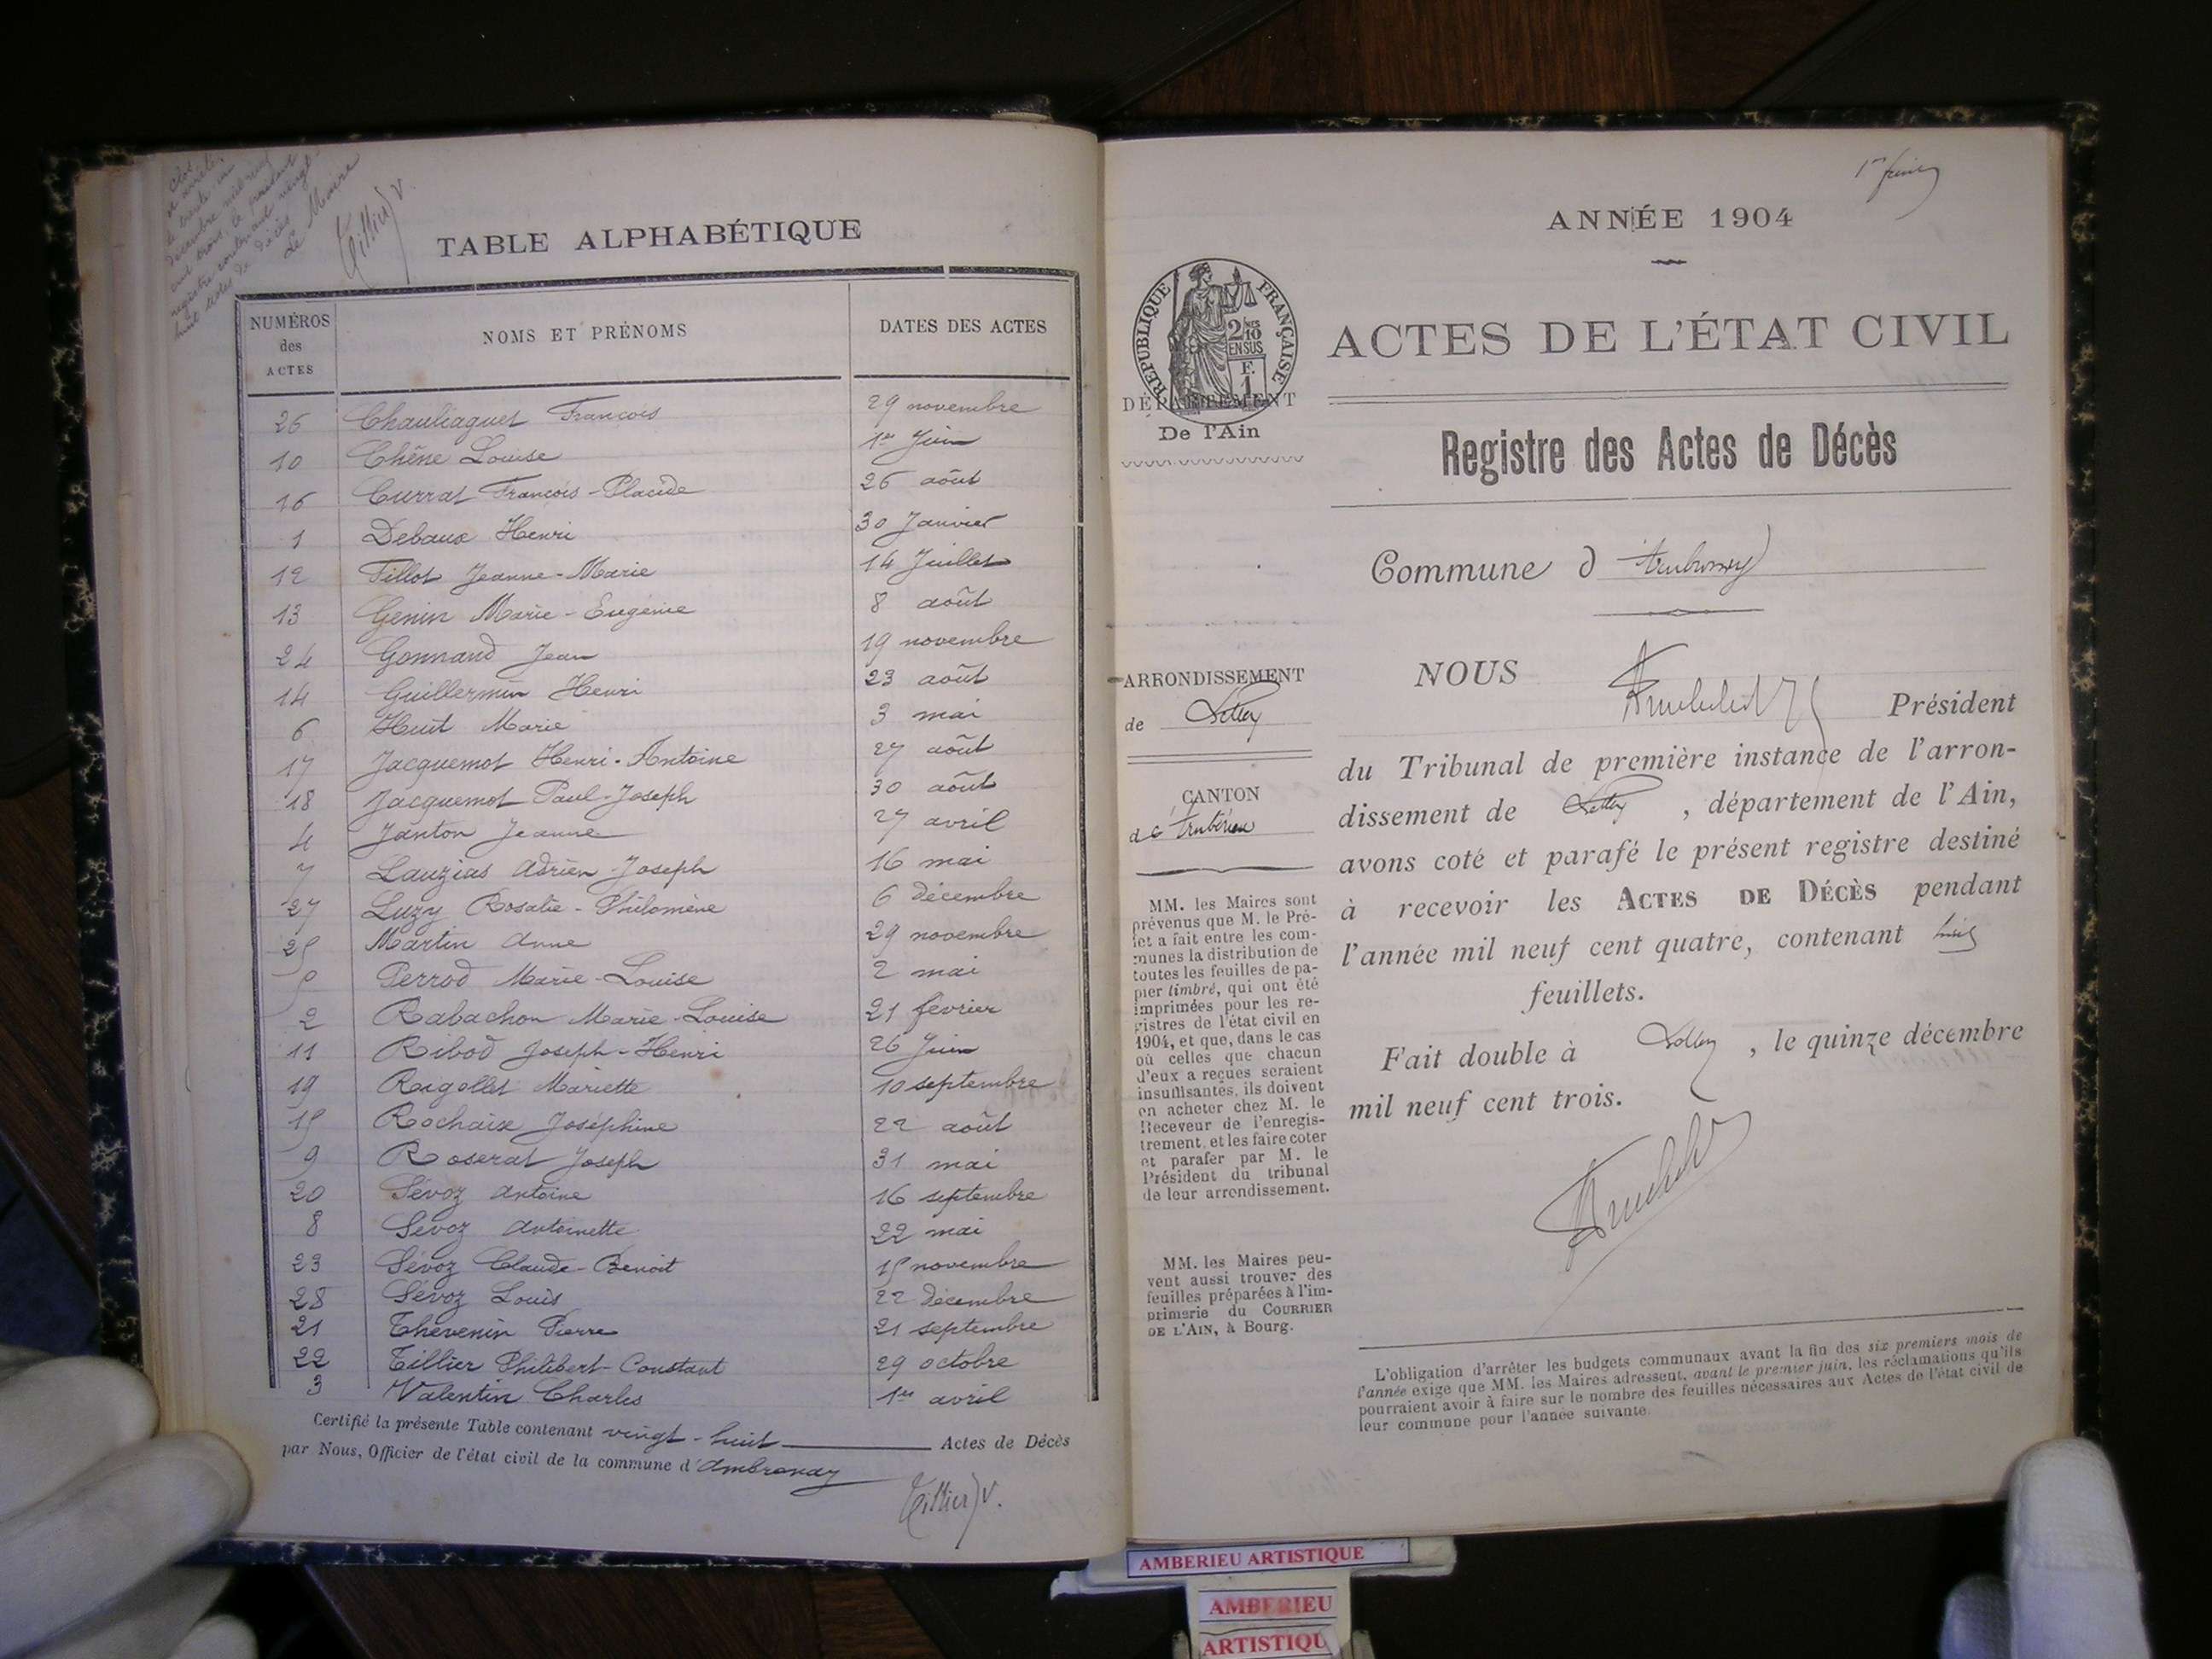 Clos
et arrêté
le trente un
décembre mil neuf
cent trois, le présent
registre contenant vingt
huit actes de décès
Le Maire
Tillier V.
TABLE ALPHABÉTIQUE
NUMÉROS des ACTES
NOMS ET PRÉNOMS
DATES DES ACTES
26 Chauliaguet François 29 novembre
10 Chêne Louise 1er Juin
16 Currat François-Placide 26 août
1 Debaux Henri 30 Janvier
12 Fillot Jeanne-Marie 14 Juillet
13 Genin Marie-Eugénie 8 août
24 Gonnand Jean 19 novembre
14 Guillermin Henri 23 août
6 Huit Marie 3 mai
17 Jacquemot Henri-Antoine 27 août
18 Jacquemot Paul-Joseph 30 août
4 Janton Jeanne 27 avril
7 Lauzias Adrien-Joseph 16 mai
27 Luzy Rosalie-Philomène 6 décembre
25 Martin Anne 29 novembre
5 Perrod Marie-Louise 2 mai
2 Rabachon Marie-Louise 21 février
11 Ribod Joseph-Henri 26 Juin
19 Rigollet Mariette 10 septembre
15 Rochaix Joséphine 22 août
9 Roserat Joseph 31 mai
20 Sévoz Antoine 16 septembre
8 Sévoz Antoinette 22 mai
23 Sévoz Claude-Benoit 15 novembre
28 Sévoz Louis 22 décembre
21 Thévenin Pierre 21 septembre
22 Tillier Philibert-Constant 29 octobre
3 Valentin Charles 1er avril
Certifié la présente Table contenant vingt-huit Actes de Décès
par Nous, Officier de l'état civil de la commune d'Ambronay
Tillier V.
ANNÉE 1904
RÉPUBLIQUE FRANÇAISE
2/10
EN SUS
F.
1
ACTES DE L'ÉTAT CIVIL
DÉPARTEMENT
De l'Ain
Registre des Actes de Décès
Commune d'Ambronay
ARRONDISSEMENT
de Belley
CANTON
d'Ambérieu
NOUS
Président
du Tribunal de première instance de l'arron-
dissement de Belley, département de l'Ain,
avons coté et parafé le présent registre destiné
à recevoir les ACTES DE DÉCÈS pendant
l'année mil neuf cent quatre, contenant
feuillets.
Fait double à Belley, le quinze décembre
mil neuf cent trois.
MM. les Maires sont
prévenus que M. le Pré-
fet a fait entre les com-
munes la distribution de
toutes les feuilles de pa-
pier timbré, qui ont été
imprimées pour les re-
gistres de l'état civil en
1904, et que, dans le cas
où celles que chacun
d'eux a reçues seraient
insuffisantes, ils doivent
en acheter chez M. le
Receveur de l'enregis-
trement, et les faire coter
et parafer par M. le
Président du tribunal
de leur arrondissement.
MM. les Maires peu-
vent aussi trouver des
feuilles préparées à l'im-
primerie du COURRIER
DE L'AIN, à Bourg.
L'obligation d'arrêter les budgets communaux avant la fin des six premiers mois de
l'année exige que MM. les Maires adressent, avant le premier juin, les réclamations qu'ils
pourraient avoir à faire sur le nombre des feuilles nécessaires aux Actes de l'état civil de
leur commune pour l'année suivante.
AMBERIEU ARTISTIQUE
AMBERIEU
ARTISTIQU